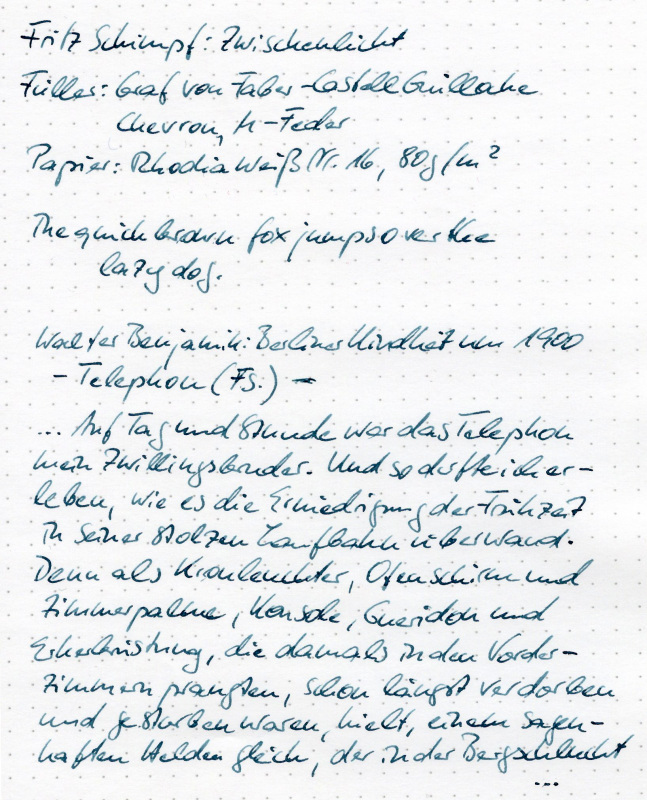 Fritz Schimpf: Zwischenlicht
Füller: Graf von Faber-Castell Guilloche
Chevron, M-Feder
Papier: Rhodia Weiß Nr. 16, 80g/m²
The quick brown fox jumps over the
lazy dog.
Walter Benjamin: Berliner Kindheit um 1900
- Telephon (Fs.) -
... Auf Tag und Stunde war das Telephon
mein Zwillingsbruder. Und so durfte ich er-
leben, wie es die Erniedrigung der Frühzeit
in seiner stolzen Laufbahn überwand.
Denn als Kronleuchter, Ofenschirm und
Zimmerpalme, Konsole, Gueridon und
Erkerbrüstung, die damals in den Vorder-
zimmern prangten, schon längst verdorben
und gestorben waren, hielt, einem sagen-
haften Helden gleich, der in der Bergschlucht
...